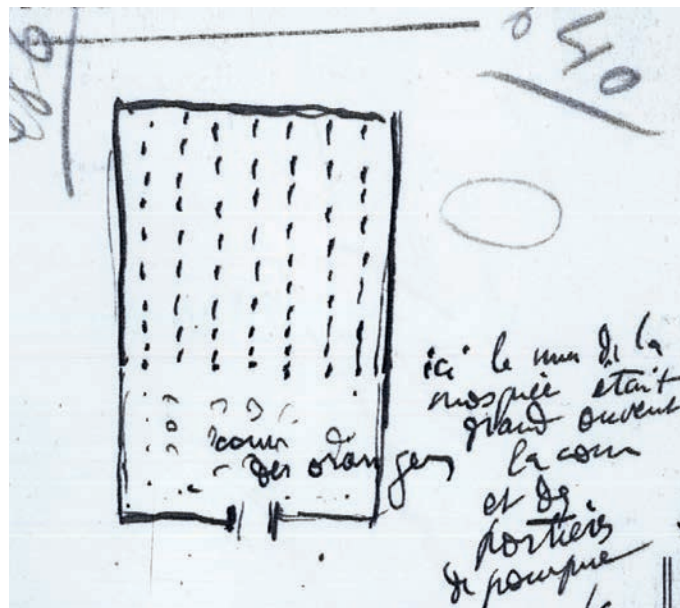 40
cour
des orangers
ici le mur de la
mosquée était
grand ouvert
la cour
et des
portières
de pourpre